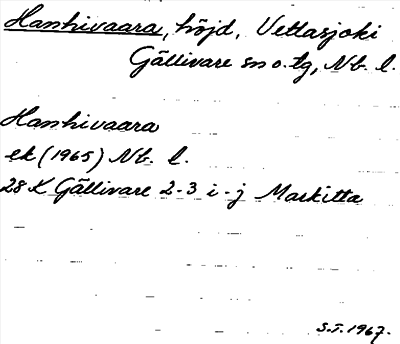 Hanhivaara, höjd, Vettasjoki
Gällivare sn o. tg, Nb. l.
Hanhivaara
ek (1965) Nb. l.
28 K Gällivare 2-3 i-j Markitta
S.T. 1967.